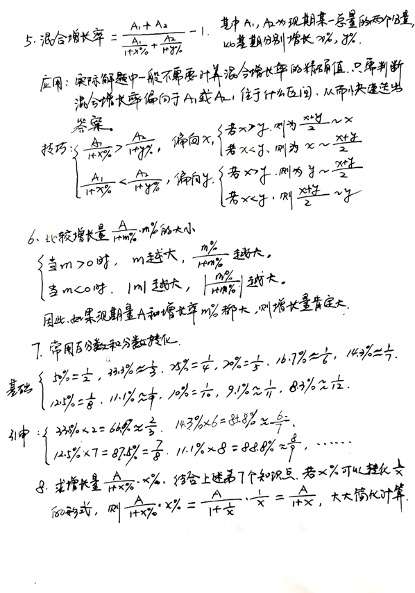 5. 混合增长率 = (A₁+A₂)/(A₁/(1+x%) + A₂/(1+y%)) - 1. 其中A₁,A₂为现期某一总量的两个分量,
比基期分别增长x%, y%.
应用: 实际解题中一般不需要计算混合增长率的精确值, 只需判断
混合增长率偏向于A₁或A₂, 位于什么区间, 从而快速选出
答案.
技巧: { A₁/(1+x%) > A₂/(1+y%), 偏向x, { 若x>y, 则为 (x+y)/2 ~ x
若x<y, 则为 x ~ (x+y)/2
A₁/(1+x%) < A₂/(1+y%), 偏向y. { 若x>y, 则为 y ~ (x+y)/2
若x<y, 则 (x+y)/2 ~ y
6. 比较增长量 A/(1+m%)·m% 的大小
{ 当m>0时, m越大, m%/(1+m%) 越大.
当m<0时, |m|越大, |m%/(1+m%)| 越大.
因此, 如果现期量A和增长率m%都大, 则增长量肯定大.
7. 常用百分数和分数转化.
基础 { 50%=1/2, 33.3%≈1/3, 25%=1/4, 20%=1/5, 16.7%≈1/6, 14.3%≈1/7.
12.5%=1/8, 11.1%≈1/9, 10%=1/10, 9.1%≈1/11, 8.3%≈1/12.
引申: { 33.3%×2=66.6%≈2/3, 14.3%×6=85.8%≈6/7.
12.5%×7=87.5%=7/8. 11.1%×8=88.8%≈8/9, ......
8. 求增长量 A/(1+x%)·x%. 结合上述第7个知识点. 若x%可以转化1/x
的形式, 则 A/(1+x%)·x% = A/(1+1/x)·1/x = A/(1+x), 大大简化计算.